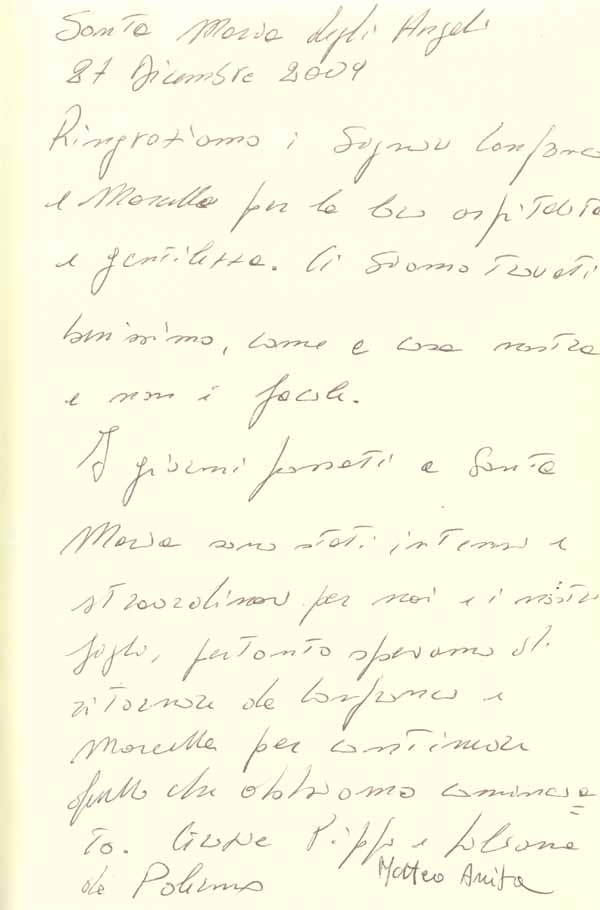 Santa Maria degli Angeli
27 Dicembre 2009
Ringraziamo i Signori Lanfranco
e Marcella per la loro ospitalità
e gentilezza. Ci siamo trovati
benissimo, come a casa nostra
e non è facile.
I giorni passati a Santa
Maria sono stati intensi e
straordinari per noi e i nostri
figli, pertanto speriamo di
ritornare da Lanfranco e
Marcella per continuare
quello che abbiamo comincia=
to. Grazie Pippo e
da Palermo Matteo Anita